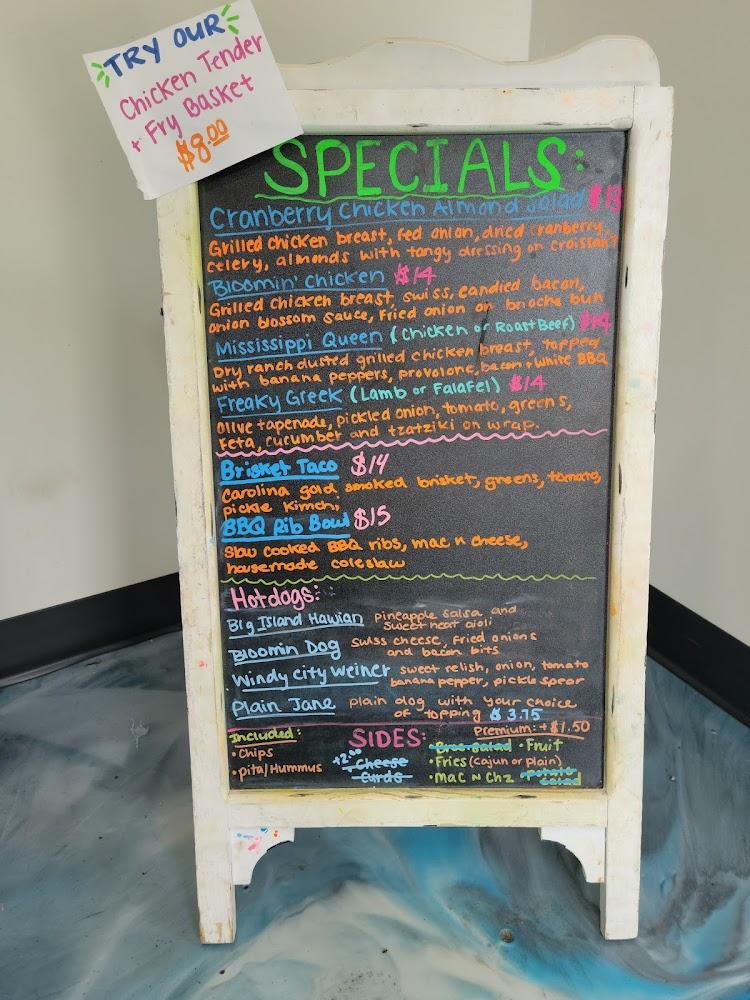 TRY OUR
Chicken Tender
+ Fry Basket
$8.00
SPECIALS:
Cranberry Chicken Almond Salad $13
Grilled chicken breast, red onion, dried cranberry,
celery, almonds with tangy dressing on croissant
Bloomin' Chicken $14
Grilled chicken breast, swiss, candied bacon,
onion blossom sauce, Fried onion on brioche bun
Mississippi Queen (Chicken or Roast Beef) $14
Dry ranch dusted grilled chicken breast, topped
with banana peppers, provolone, bacon + white BBQ
Freaky Greek (Lamb or Falafel) $14
Olive tapenade, pickled onion, tomato, greens,
Feta, cucumber and tzatziki on wrap.
Brisket Taco $14
Carolina gold smoked brisket, greens, tomato,
pickle Kimchi
BBQ Rib Bowl $15
Slow cooked BBQ ribs, mac n cheese,
housemade coleslaw
Hotdogs:
Big Island Hawian pineapple salsa and
sweet heat aioli
Bloomin Dog swiss cheese, fried onions
and bacon bits
Windy City Weiner sweet relish, onion, tomato
banana pepper, pickle spear
Plain Jane plain dog with your choice
of topping $3.75
Included:
• Chips
• pita/Hummus
SIDES:
+2.00 Cheese
Curds
Premium: +$1.50
• Broc Salad • Fruit
• Fries (cajun or plain)
• Mac N Chz • Potato
Salad